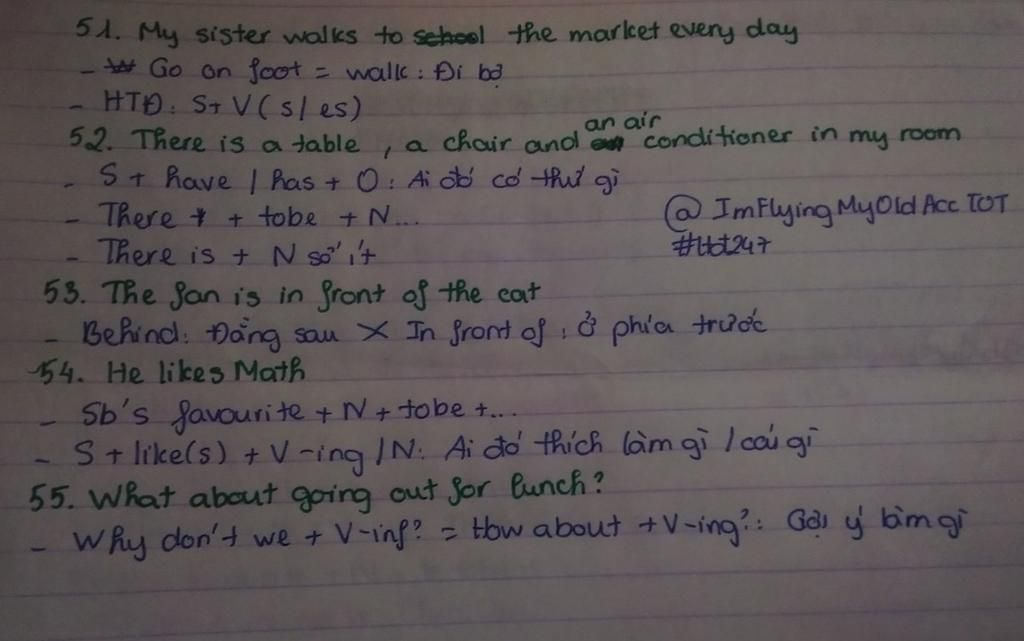 51. My sister walks to school the market every day
- W Go on foot = walk: Đi bộ
- HTĐ: S+ V (s/es)
an air
52. There is a table, a chair and an conditioner in my room
- S + have / has + O: Ai đó có thứ gì
- There + + tobe + N...
@ImFlyingMyOldAccTOT
There is + N số ít
#tbt247
53. The fan is in front of the cat
- Behind: Đằng sau X In front of: Ở phía trước
54. He likes Math
- Sb's favourite + N + tobe +...
- S + like(s) + V-ing / N: Ai đó thích làm gì / cái gì
55. What about going out for lunch?
- Why don't we + V-inf? = How about + V-ing?: Gợi ý làm gì